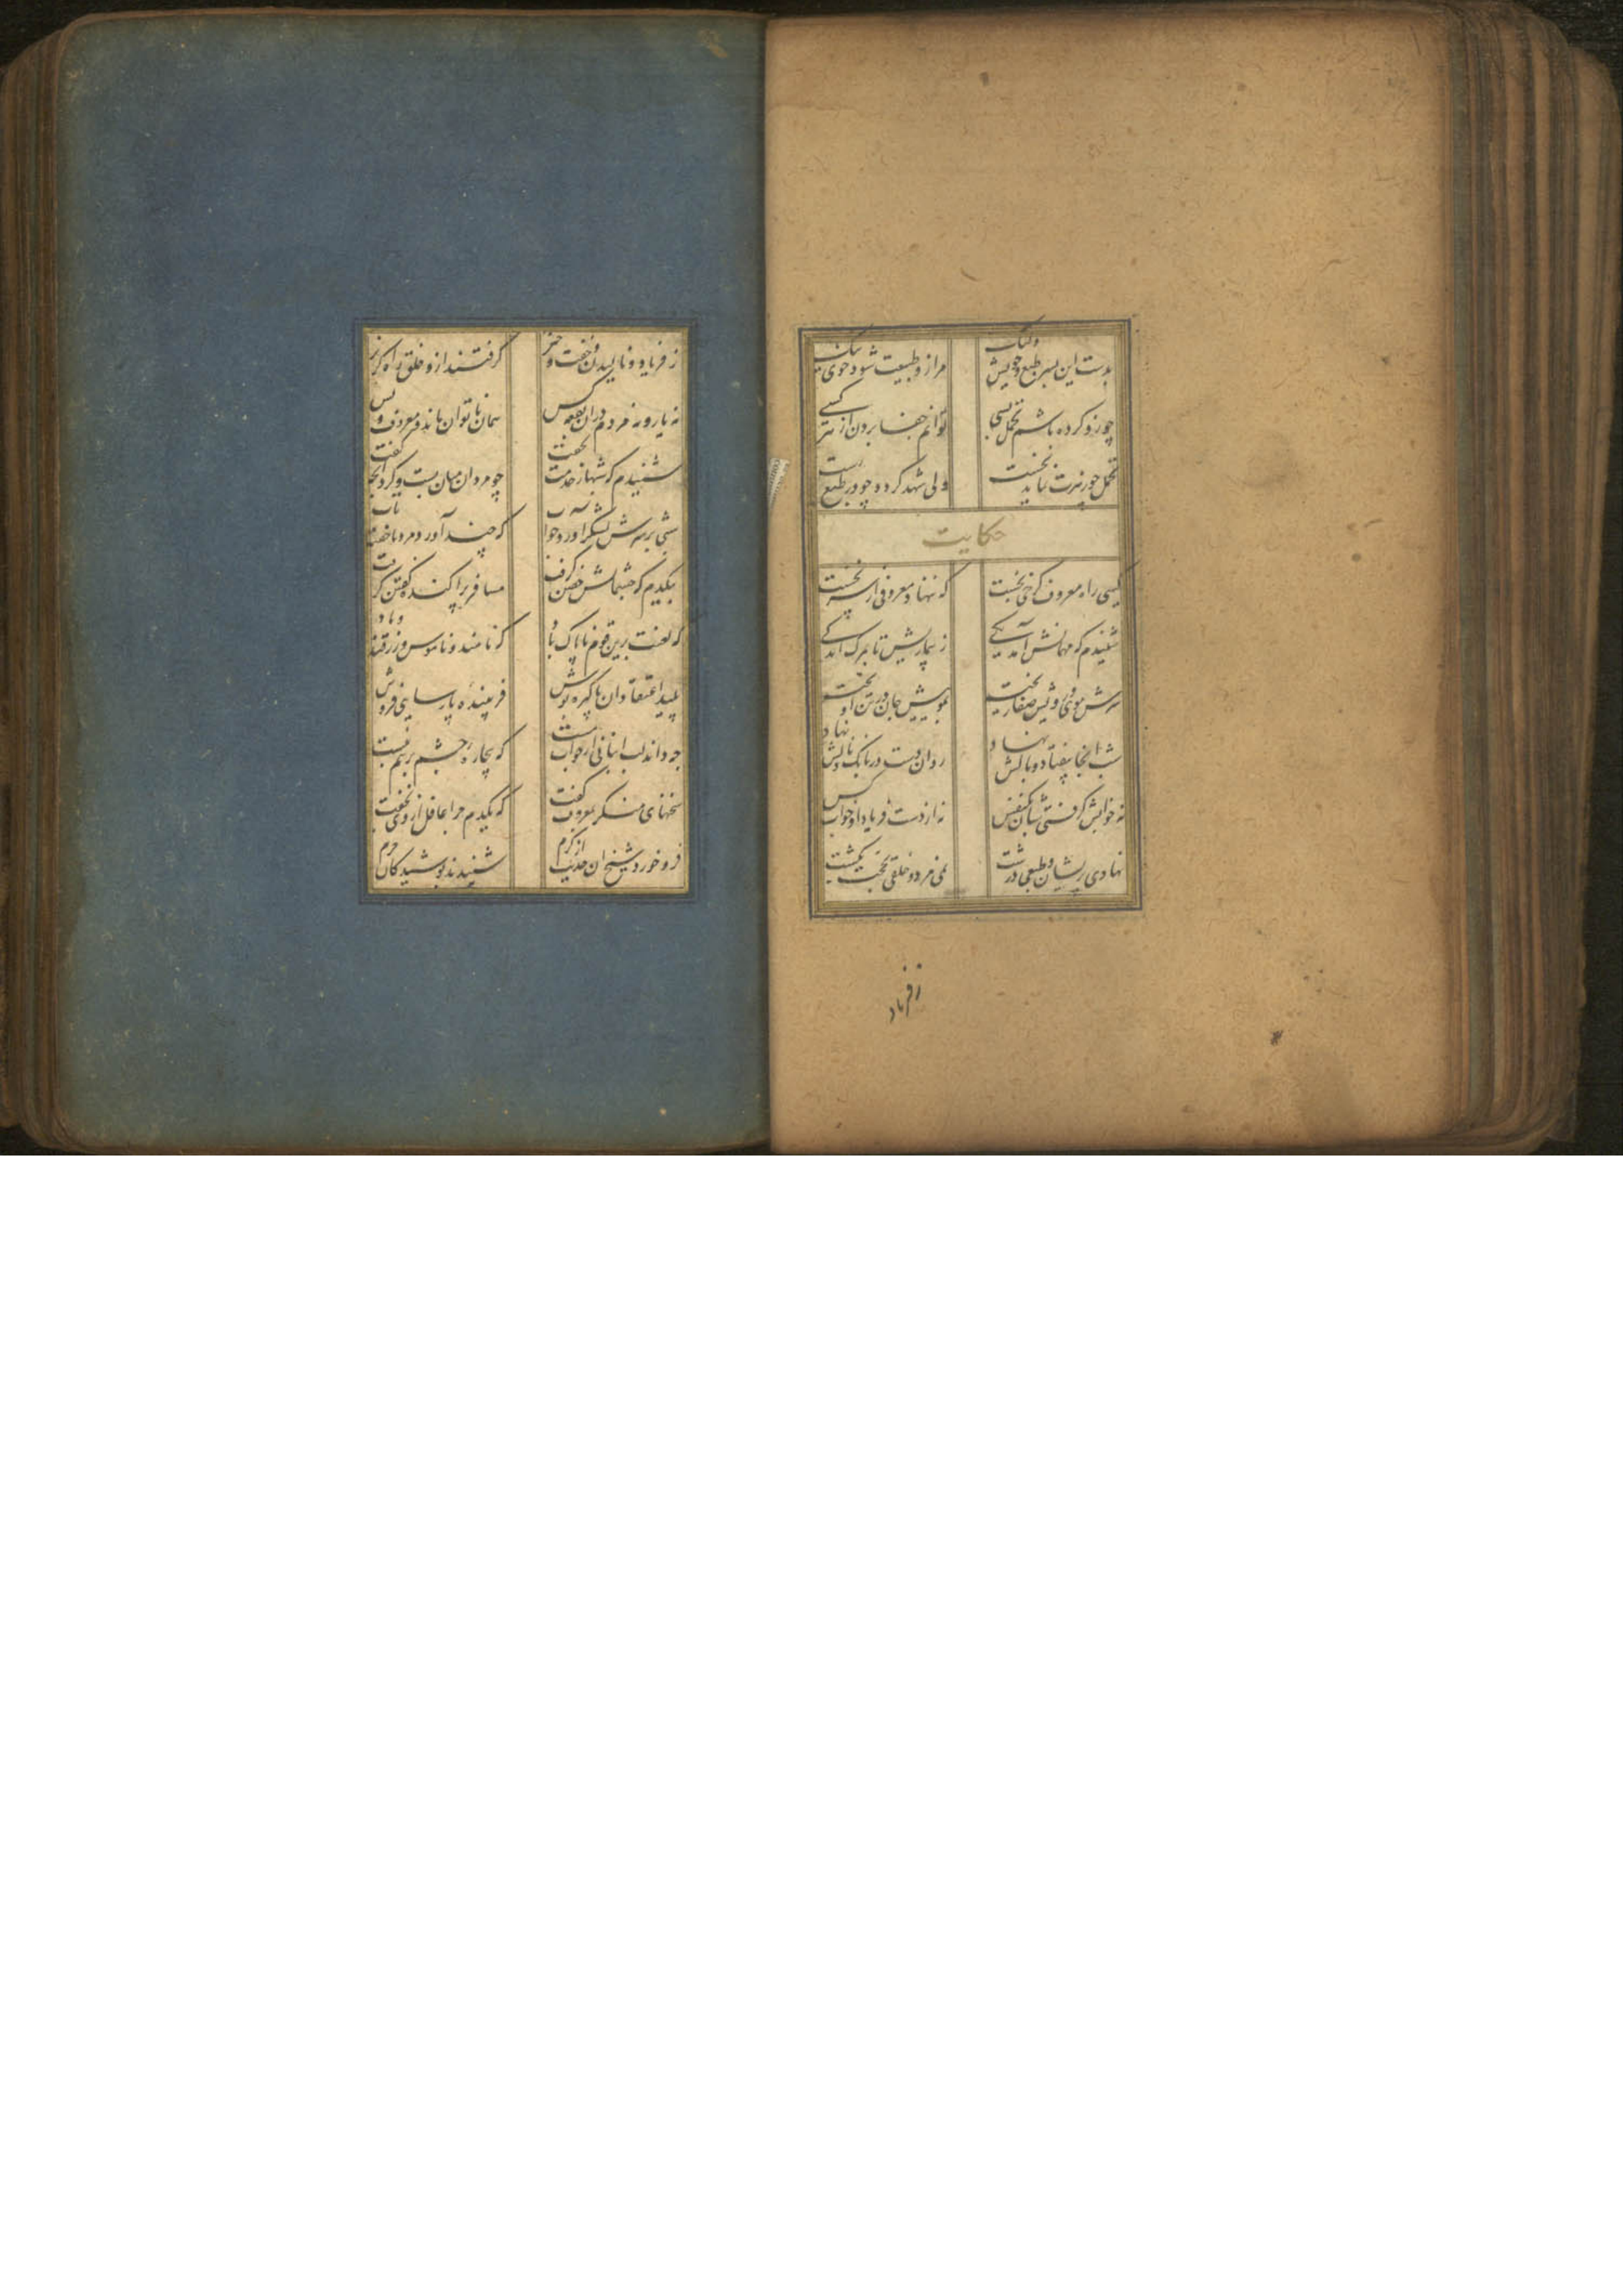 بدست این پسر طبع و خویش ولیک
مرا زو طبیعت شود خوی نیک
چو زو کرده باشم تحمل بسی
توانم جفا بردن از هر کسی
تحمل چو زهرت نماید نخست
ولی شهد گردد چو در طبع رست
حکایت
کسی راه معروف کرخی بجست
که ننهاد معروفی از سر نخست
شنیدم که مهمانش آمد یکی
ز بیماریش تا بمرگ اندکی
سرش موی و رویش صفا ریخته
بموییش جان در تن آویخته
شب آنجا بیفتاد و بالش نهاد
روان دست در بانک و نالش نهاد
نه خوابش گرفتی شبان یکنفس
نه از دست فریاد او خواب کس
نهادی پریشان و طبعی درشت
نمی مرد و خلقی بحجت بکشت
ز فریاد
ز فریاد و نالیدن و خفت و خیز
گرفتند ازو خلق راه گریز
نه یار و نه مردم در آن بقعه کس
همان ناتوان ماند و معروف و بس
شنیدم که شبها ز خدمت نخفت
چو مردان میان بست و کرد آنچه گفت
شبی بر سرش لشکر آورد خواب
که چند آورد مرد ناخفته تاب
بیکدم که چشمانش خفتن گرفت
مسافر پراکنده گفتن گرفت
که لعنت برین قوم ناپاک باد
که نامند و ناموس و زرقند و باد
پلید اعتقادان پاکیزه پوش
فریبنده پارسایی فروش
چه داند لت انبانی از خواب مست
که بیچاره چشم بر هم نبست
سخنهای منکر بمعروف گفت
که یکدم چرا غافل از وی نخفت
فرو خورد شیخ آن حدیث از کرم
شنیدند پوشیدکان حرم